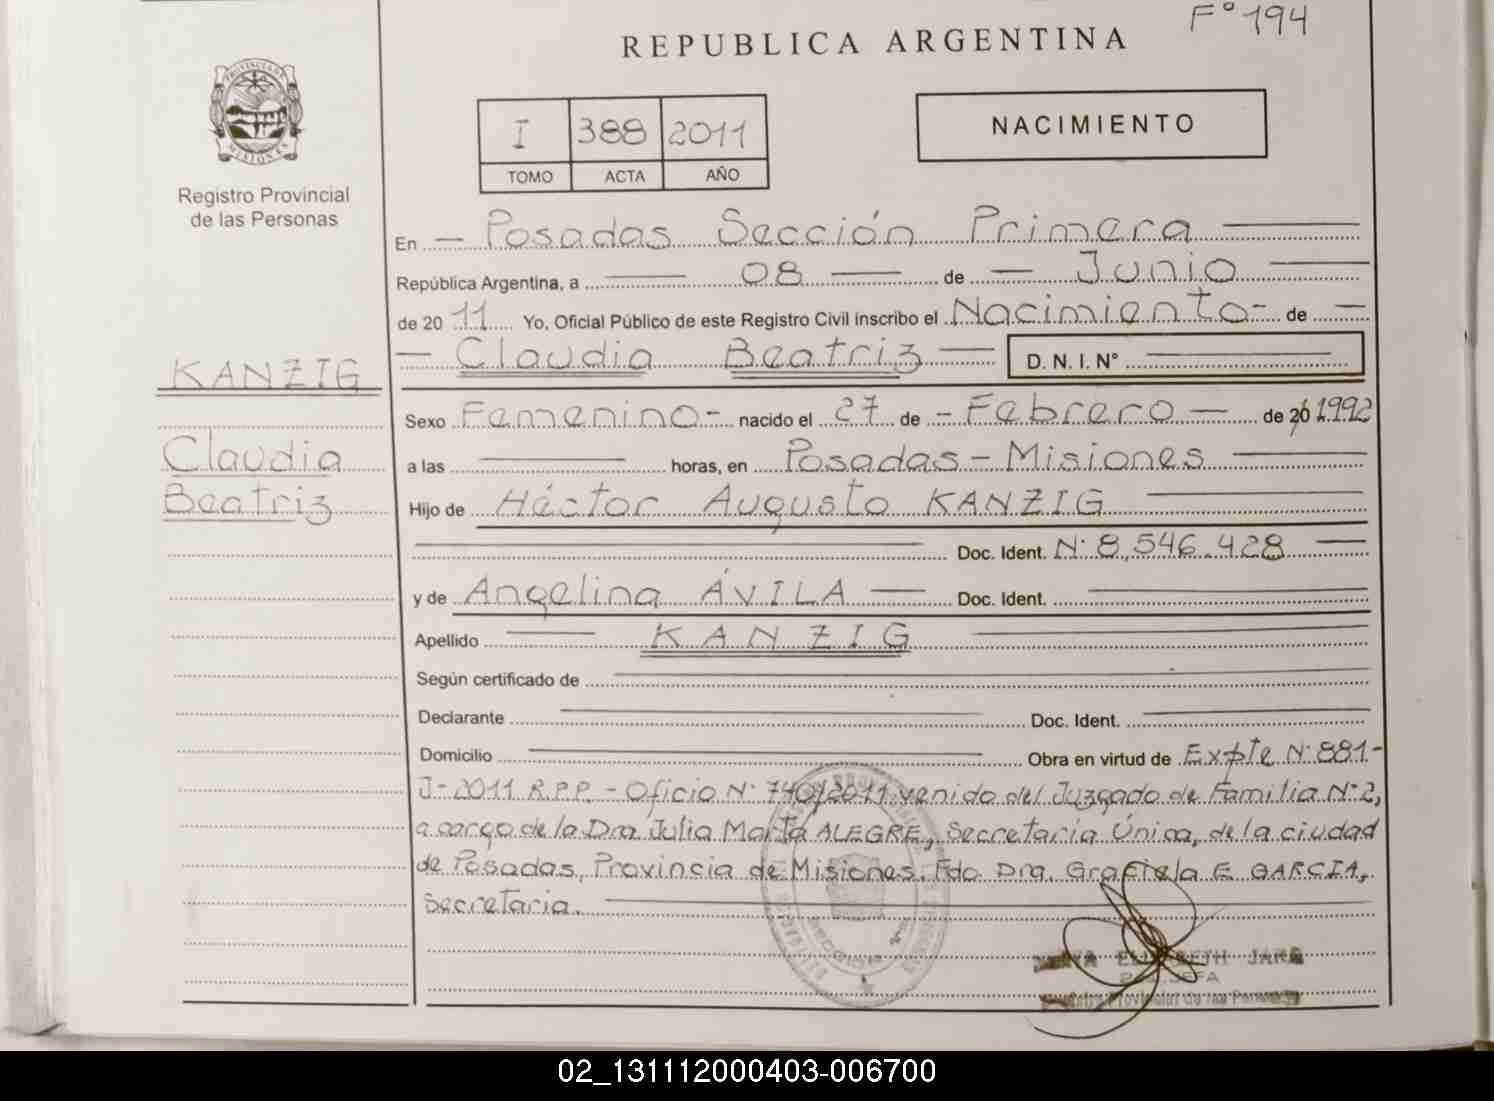 F° 194
REPUBLICA ARGENTINA
PROVINCIA DE
MISIONES
Registro Provincial
de las Personas
I 388 2011
TOMO ACTA AÑO
NACIMIENTO
En — Posadas Sección Primera —
República Argentina, a — 08 — de — Junio —
de 20 11 Yo, Oficial Público de este Registro Civil inscribo el Nacimiento- de —
— Claudia Beatriz — D. N. I. N° —
KANZIG
Claudia
Beatriz
Sexo Femenino- nacido el 27 de - Febrero — de 20 1992
a las — horas, en Posadas - Misiones —
Hijo de Héctor Augusto KANZIG —
— Doc. Ident. N° 8,546.428 —
y de Angelina ÁVILA — Doc. Ident. —
Apellido — KANZIG —
Según certificado de —
Declarante — Doc. Ident. —
Domicilio — Obra en virtud de Expte N° 881-
J-2011 R.P.P. - Oficio N° 740/2011 venido del Juzgado de Familia N° 2,
a cargo de la Dra Julia Marta ALEGRE, Secretaría Única, de la ciudad
de Posadas, Provincia de Misiones. Fdo Dra. Graciela E. GARCIA,
Secretaria. —
ELIZABETH JARA
Provincial de las
02_131112000403-006700